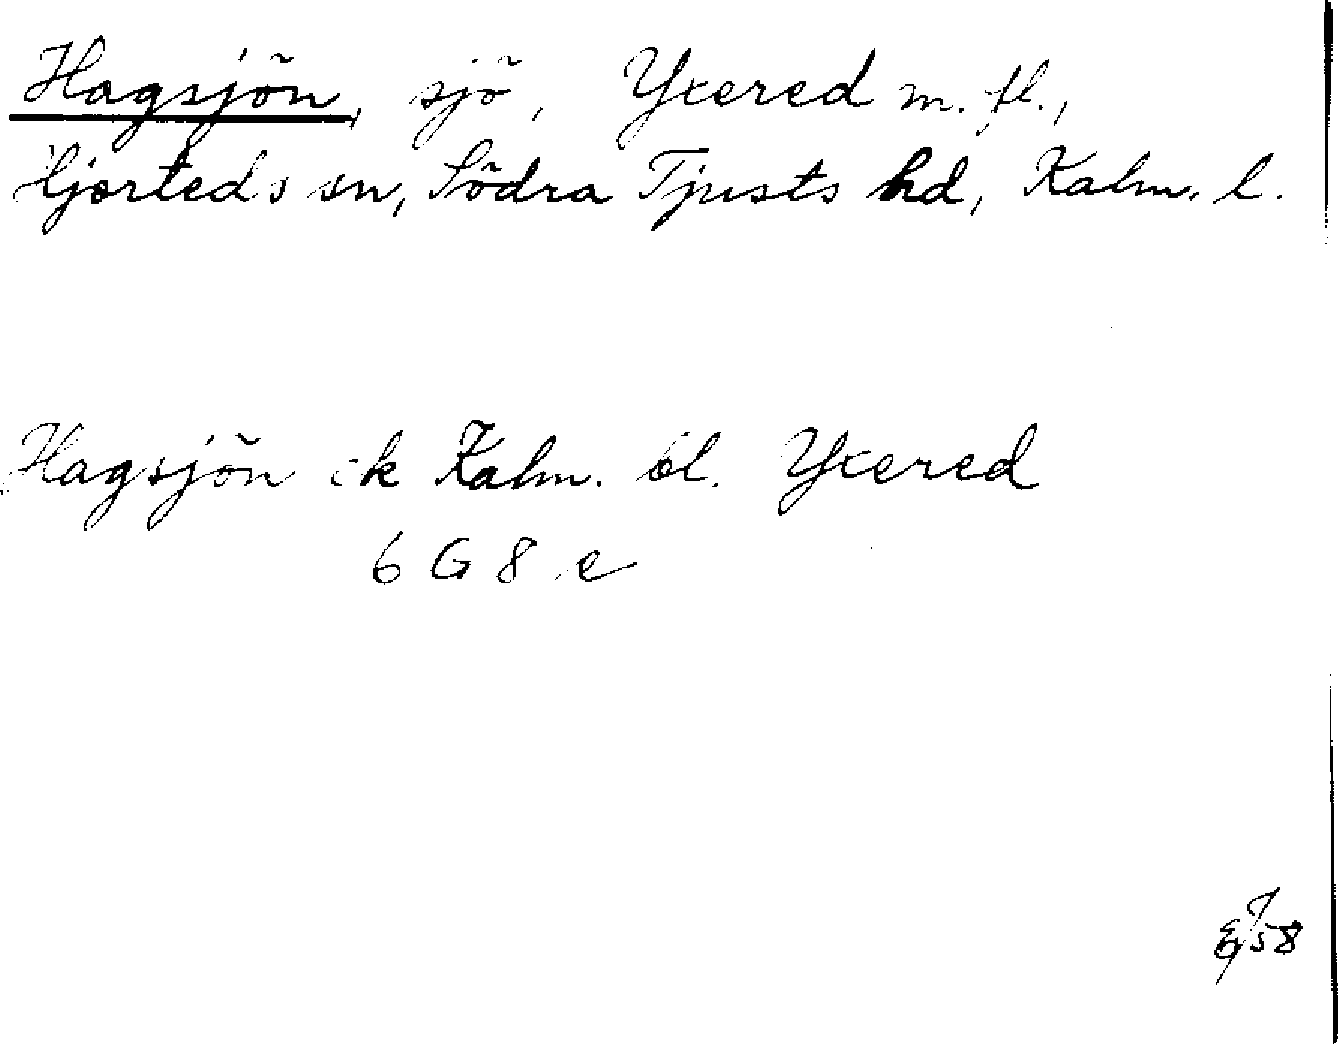 Hagsjön, sjö, Yxered m. fl.,
Hjorteds sn, Södra Tjusts hd, Kalm. l.
Hagsjön ek Kalm. bl. Yxered
6 G 8 e